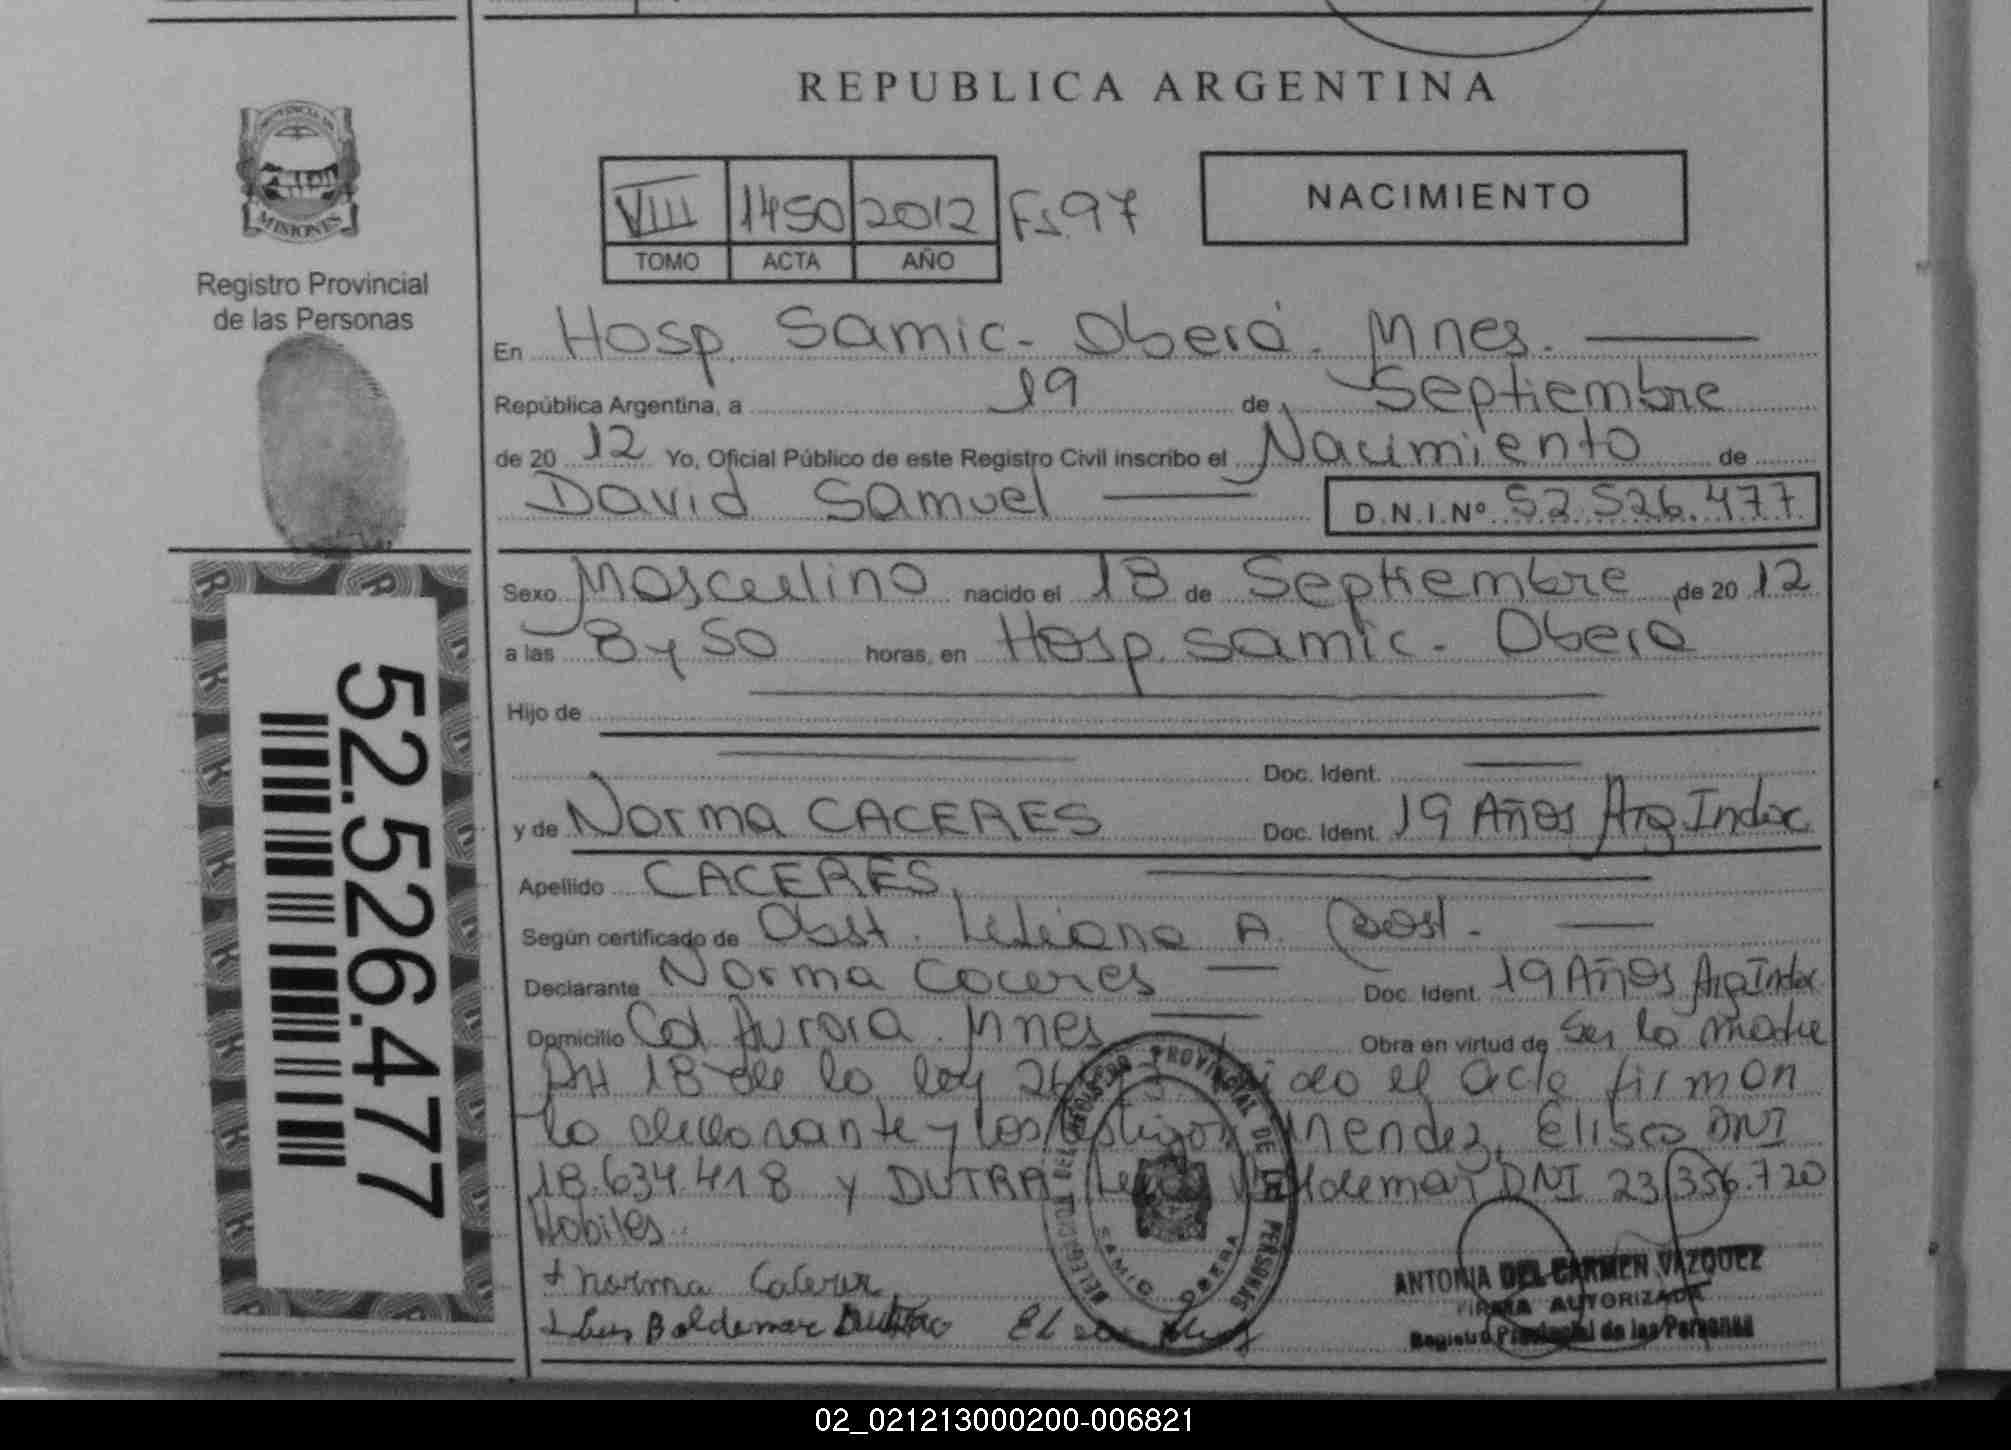 REPUBLICA ARGENTINA
PROVINCIA DE
MISIONES
Registro Provincial
de las Personas
VIII 1450 2012 Fs. 97
TOMO ACTA AÑO
NACIMIENTO
En Hosp. Samic - Oberá. Mnes.
República Argentina, a 19 de Septiembre
de 20 12 Yo, Oficial Público de este Registro Civil inscribo el Nacimiento de
David Samuel D.N.I.Nº 52.526.477
Sexo Masculino nacido el 18 de Septiembre de 20 12
a las 8 y 50 horas, en Hosp. Samic - Oberá
Hijo de
Doc. Ident.
y de Norma CACERES Doc. Ident. 19 Años Arg Indoc
Apellido CACERES,
Según certificado de Obst. Liliana A.
Declarante Norma Caceres Doc. Ident. 19 Años Arg Indoc
Domicilio Col Aurora. Mnes Obra en virtud de Ser la madre
Art 18 de la ley el acta firman
la declarante y los testigos Mendez, Eliseo DNI
18.634.418 y DUTRA Valdemar DNI 23.356.720
Habiles
+ norma
+ Luis Baldemar
52.526.477
DELEGACION DEL REGISTRO PROVINCIAL DE LAS PERSONAS
SAMIC OBERA
ANTONIA DEL CARMEN VAZQUEZ
FIRMA AUTORIZADA
Registro Provincial de las Personas
02_021213000200-006821